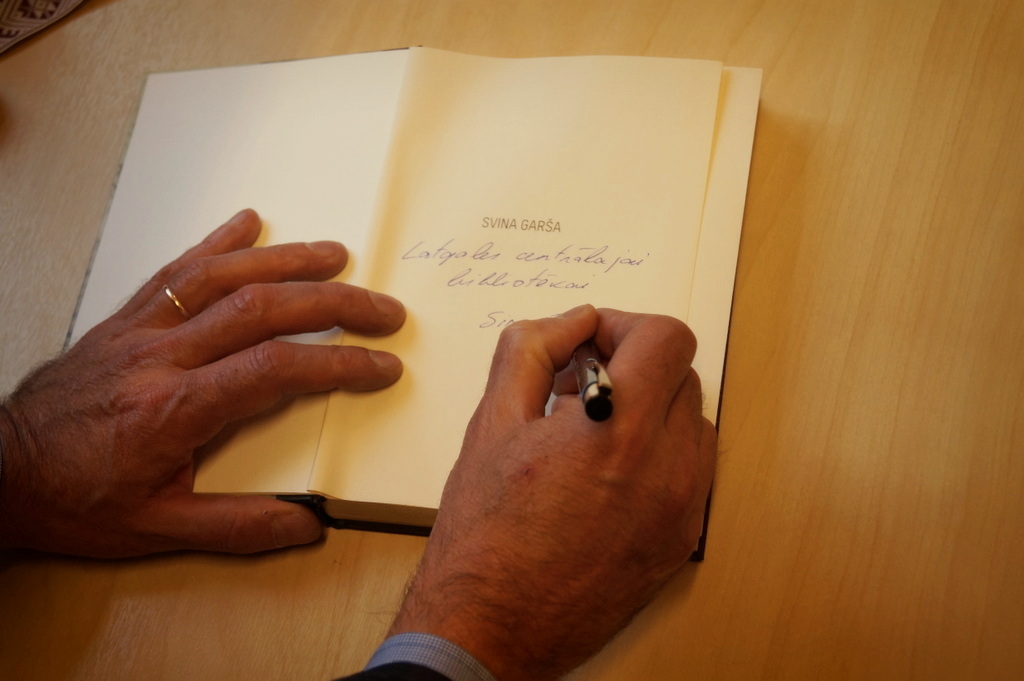 SVINA GARŠA
Latgales centrālajai
bibliotēkai
Sir